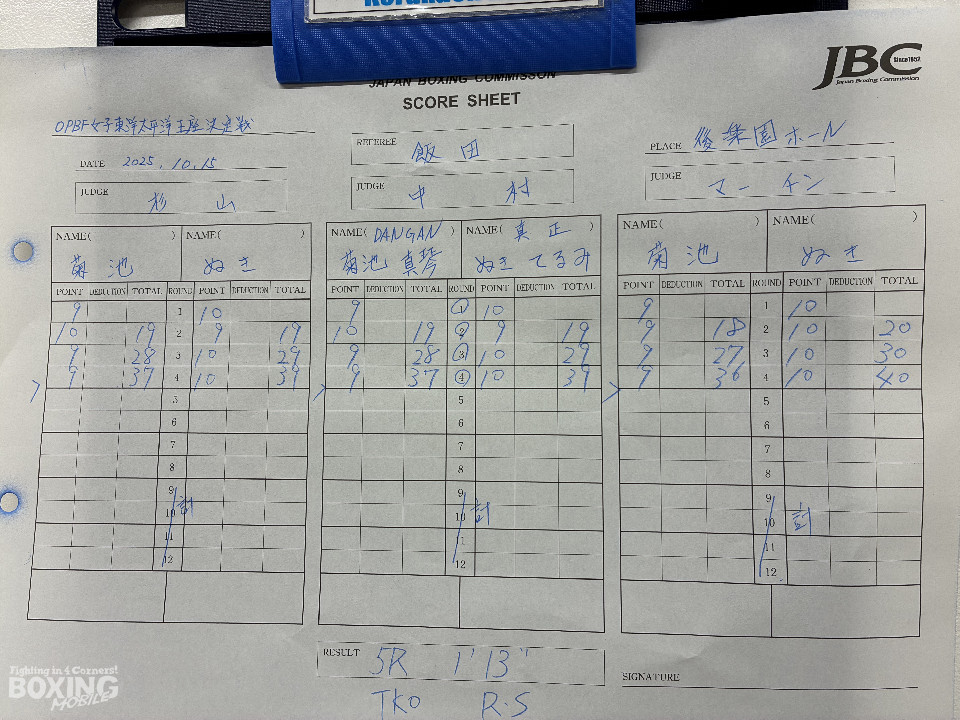 JAPAN BOXING COMMISSON
SCORE SHEET
JBC Since1952
Japan Boxing Commission
OPBF女子東洋太平洋王座決定戦
REFEREE 飯田
PLACE 後楽園ホール
DATE 2025.10.15
JUDGE 杉山
JUDGE 中村
JUDGE マーチン
NAME( ) NAME( )
菊池 ぬき
POINT DEDUCTION TOTAL ROUND POINT DEDUCTION TOTAL
9 1 10
10 19 2 9 19
9 28 3 10 29
9 37 4 10 39
5
6
7
8
9
10 計
11
12
NAME( DANGAN ) NAME( 真正 )
菊池真琴 ぬきてるみ
POINT DEDUCTION TOTAL ROUND POINT DEDUCTION TOTAL
9 1 10
10 19 2 9 19
9 28 3 10 29
9 37 4 10 39
5
6
7
8
9
10 計
11
12
NAME( ) NAME( )
菊池 ぬき
POINT DEDUCTION TOTAL ROUND POINT DEDUCTION TOTAL
9 1 10
9 18 2 10 20
9 27 3 10 30
9 36 4 10 40
5
6
7
8
9
10 計
11
12
RESULT 5R 1'13"
TKO R.S
SIGNATURE
Fighting in 4 Corners!
BOXING
MOBILE